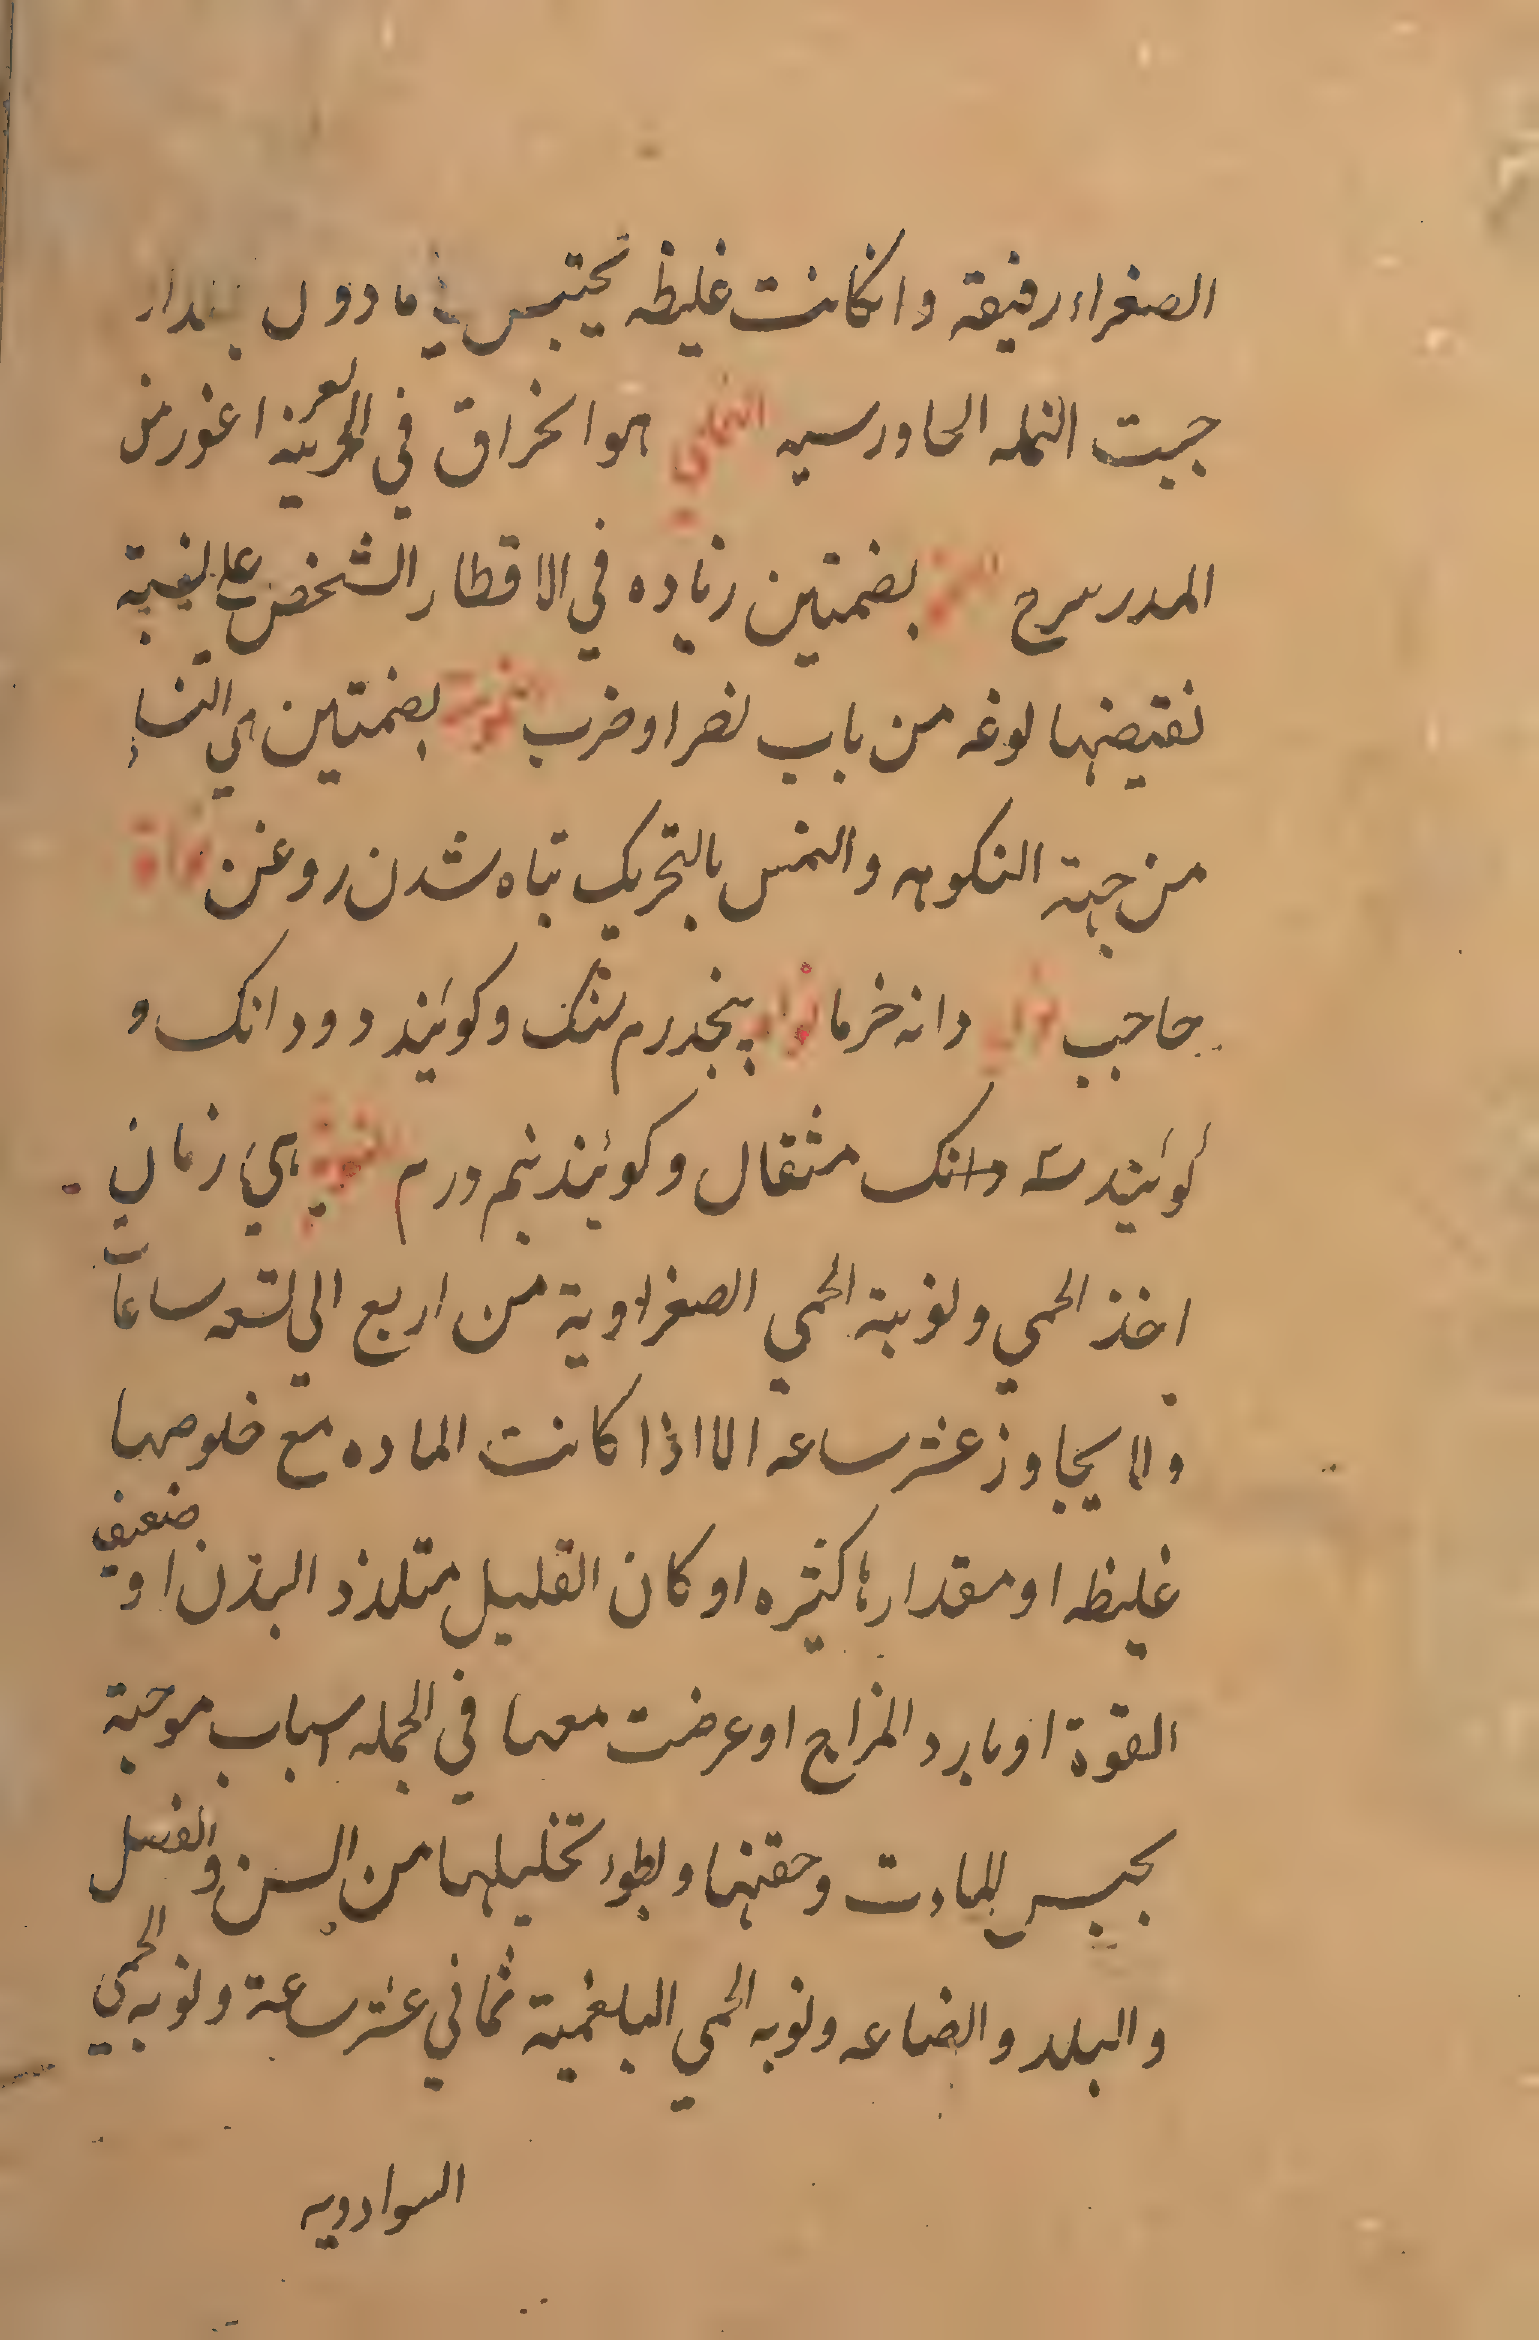 الصغراء رفيقة وانكانت غليظه تحتبس في ما دون جلدار
جيت النمله الحاورسيه النملي هو انخراق في القرينه اغور من
المدرسرح النمو بضمتين زياده في الاقطار الشخص علي لنسبة
نقيضنها لوغه من باب نصر او ضرب بضمتين هي النتا
من جهة النكوهه والنمس بالتحريك تباه شدن روغن نواة
حاجب نواة دانه خرما نواة پنجدرم سنك وكويند دودانك و
كويند سه دانك مثقال وكويند نيم درم النوبة هي زمان
اخذ الحمي ونوبة الحمي الصغراوية من اربع الي تسعه ساعات
ولا يجاوز عشر ساعه الا اذا كانت الماده مع خلوصها
غليظه او مقدارها كثيره او كان القليل متلذذ البدن او ضعيف
القوة او بارد المزاج او عرضت معها في الجمله اسباب موجبة
بحبس للمادت وحقنها وبطوء تحليلها من السن والفصل
والبلد والضاعه ونوبه الحمي البلغمية ثماني عشر ساعة ونوبه الحمي
السوادويه